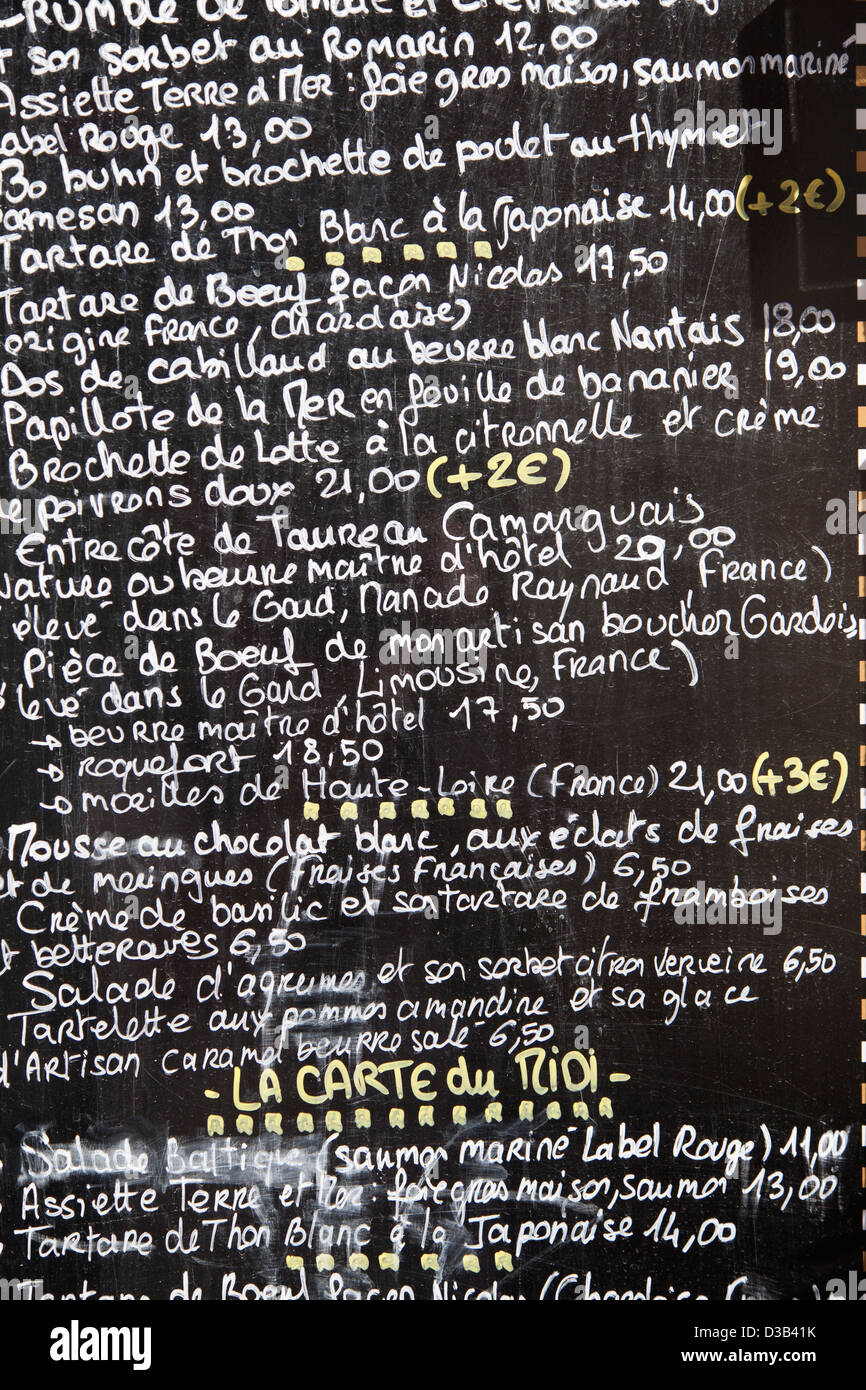 CRUMBLE de Tomate et Chèvre au
et son sorbet au Romarin 12,00
Assiette Terre d Mer : foie gras maison, saumon mariné
Label Rouge 13,00
Bo buhn et brochette de poulet au thym et
Parmesan 13,00
Tartare de Thon Blanc à la Japonaise 14,00 (+2€)
Tartare de Boeuf façon Nicolas 17,50
origine France, Charolaise)
Dos de cabillaud au beurre blanc Nantais 18,00
Papillote de la Mer en feuille de bananier 19,00
Brochette de Lotte à la citronnelle et crème
de poivrons doux 21,00 (+2€)
Entrecôte de Taureau Camarguais
Nature ou beurre maître d'hôtel 20,00
élevé dans le Gard, Manade Raynaud, France)
Pièce de Boeuf de mon artisan boucher Gardois
élevé dans le Gard, Limousine, France)
→ beurre maître d'hôtel 17,50
→ roquefort 18,50
→ morilles de Haute-Loire (France) 21,00 (+3€)
Mousse au chocolat blanc, aux éclats de fraises
et de meringues (fraises Françaises) 6,50
Crème de basilic et son tartare de framboises
et betteraves 6,50
Salade d'agrumes et son sorbet citron verveine 6,50
Tartelette aux pommes amandine et sa glace
d'Artisan caramel beurre salé 6,50
- LA CARTE du MIDI -
Salade Baltique (saumon mariné Label Rouge) 11,00
Assiette Terre et Mer : foie gras maison, saumon 13,00
Tartare de Thon Blanc à la Japonaise 14,00
Tartare de Boeuf façon Nicolas (Charolaise
alamy
alamy
Image ID: D3B41K
www.alamy.com